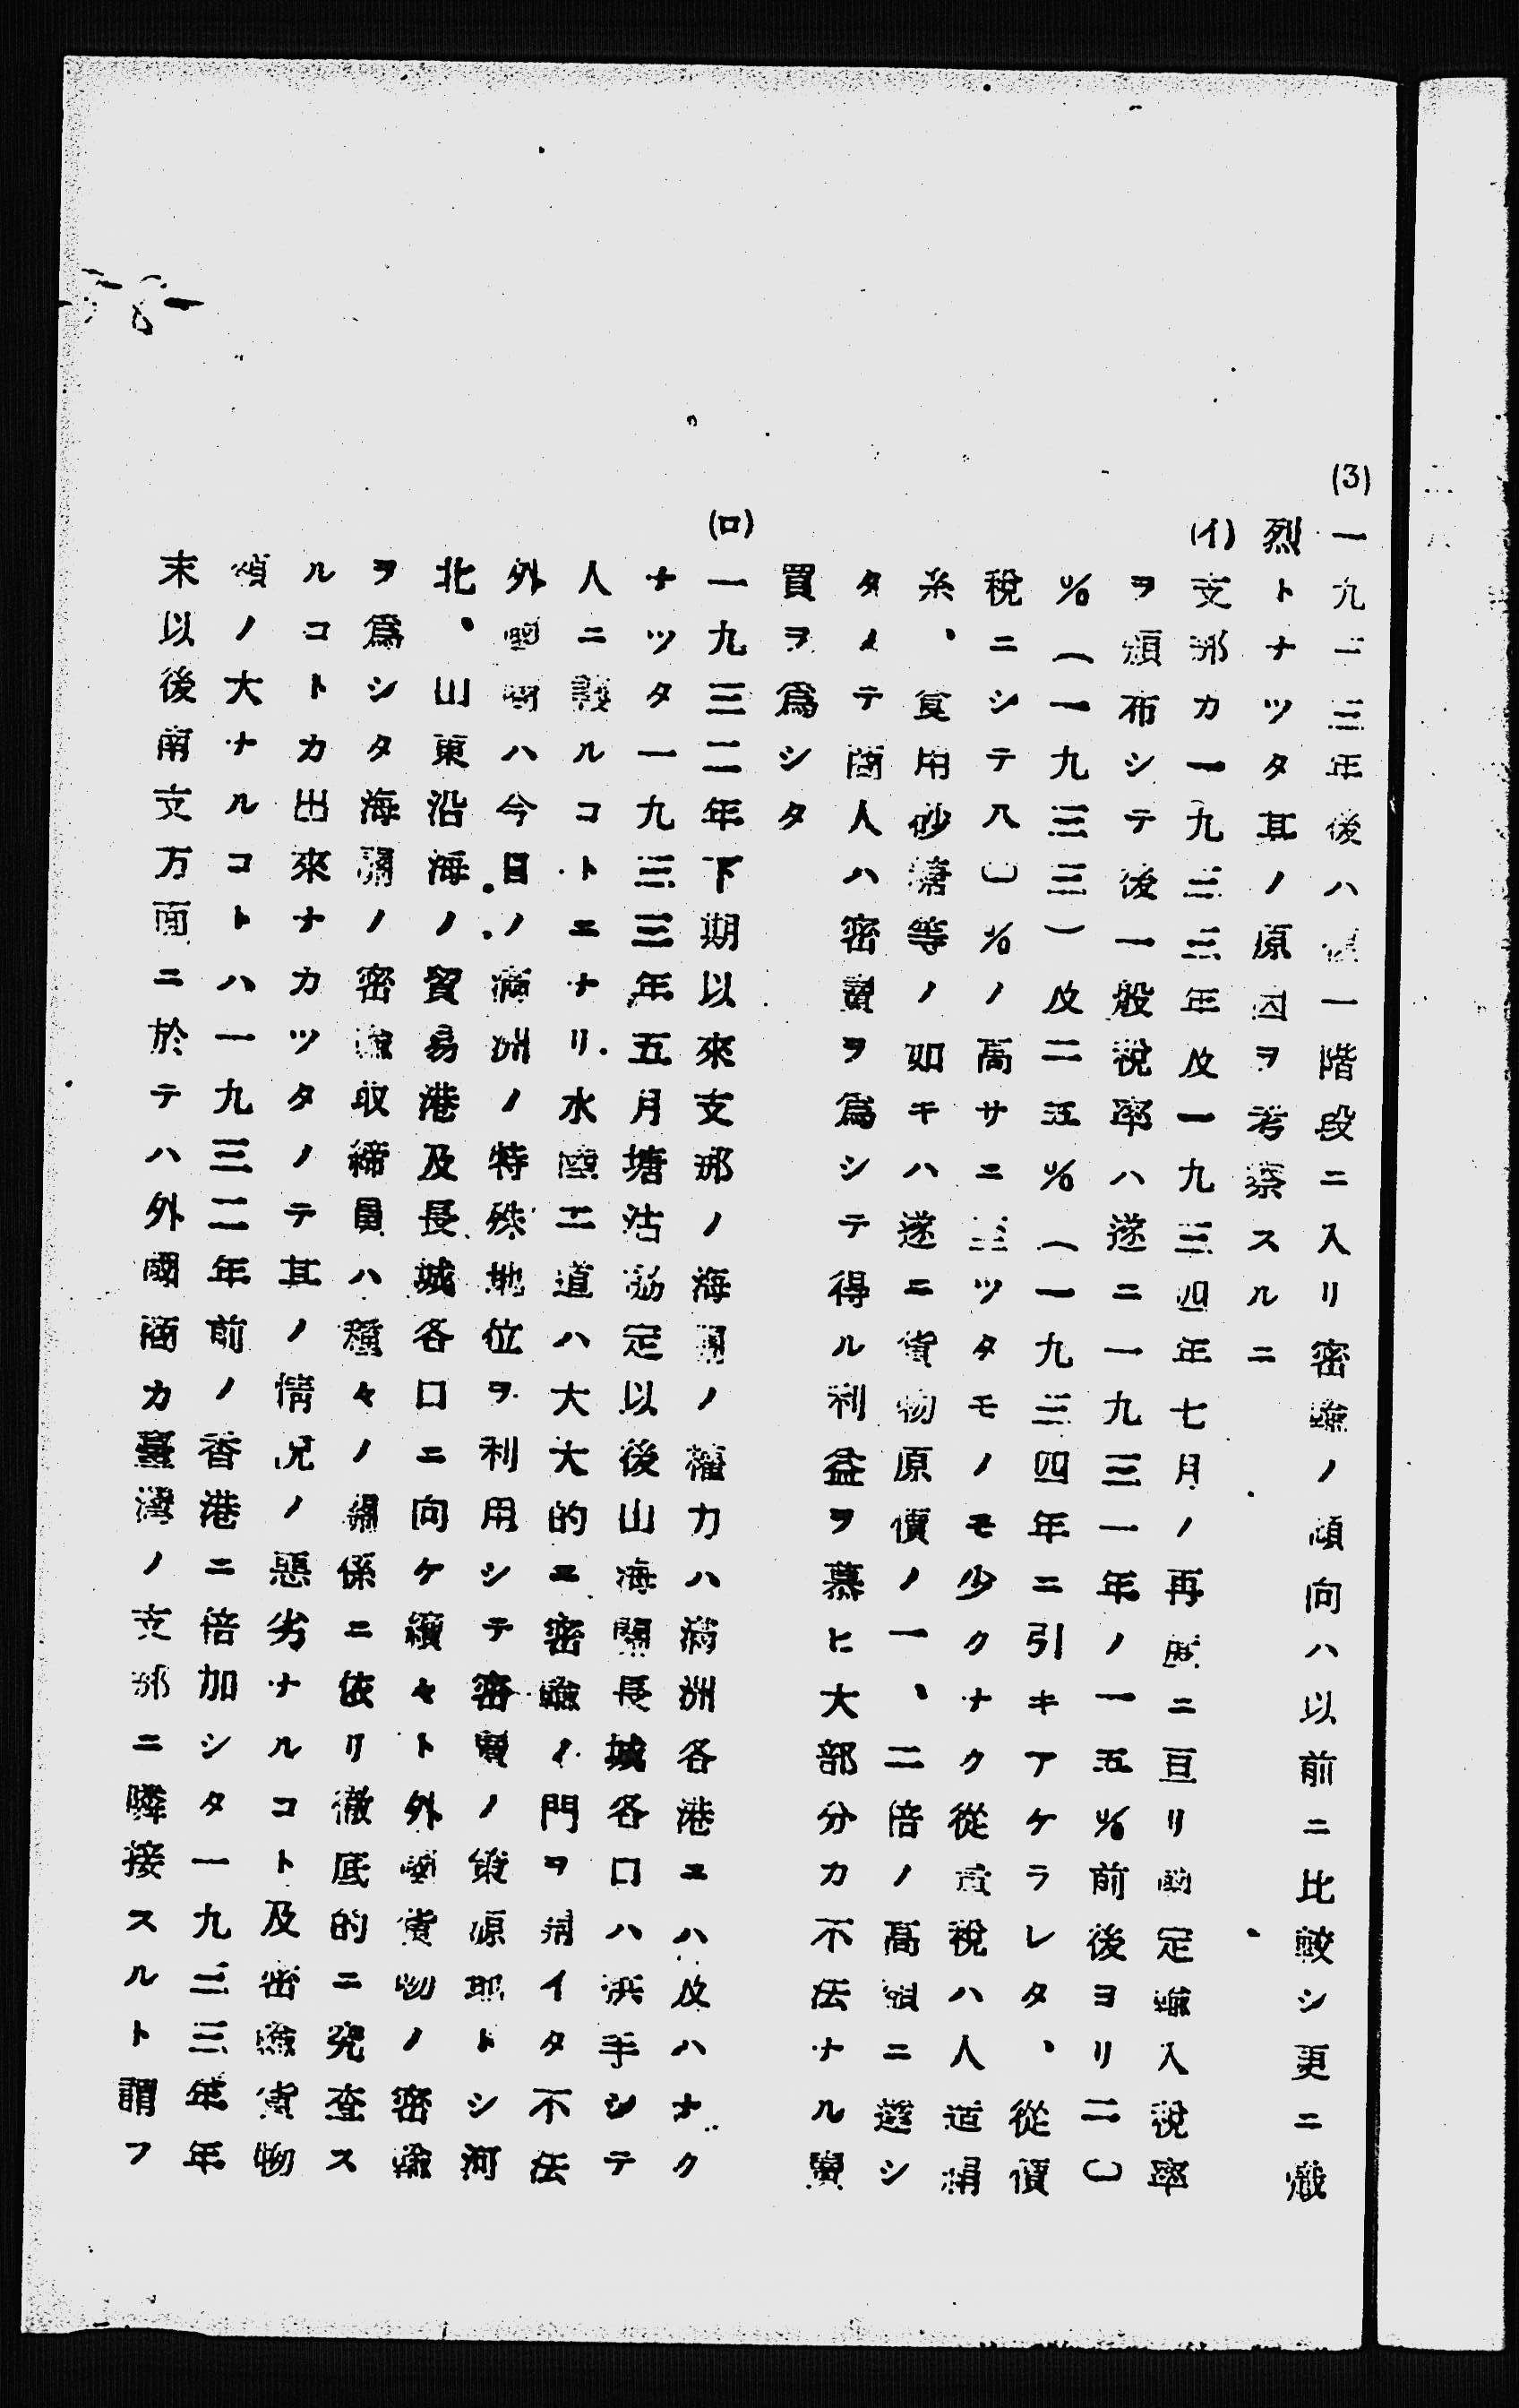 (3)
一九三三年後ハ 一階段ニ入リ密輸ノ傾向ハ以前ニ比較シ更ニ熾
烈トナツタ其ノ原因ヲ考察スルニ
(イ)
支那カ一九三三年及一九三四年七月ノ再度ニ亘リ國定輸入稅率
ヲ頒布シテ後一般稅率ハ遂ニ一九三一年ノ一五％前後ヨリ二〇
％(一九三三)及二五％(一九三四年ニ引キアケラレタ、從價
稅ニシテ八〇％ノ高サニ至ツタモノモ少クナク從量稅ハ人造絹
糸、食用砂糖等ノ如キハ遂ニ貨物原價ノ一、二倍ノ高額ニ達シ
タメテ商人ハ密賣ヲ爲シテ得ル利益ヲ慕ヒ大部分カ不法ナル賣
買ヲ爲シタ
(ロ)
一九三二年下期以來支那ノ海關ノ權力ハ滿洲各港ニハ及ハナク
ナツタ一九三三年五月塘沽協定以後山海關長城各口ハ洪手シテ
人ニ讓ルコトニナリ水陸二道ハ大大的ニ密輸ノ門ヲ開イタ不法
外國商ハ今日ノ滿洲ノ特殊地位ヲ利用シテ密賣ノ策源地トシ河
北、山東沿海ノ貿易港及長城各口ニ向ケ續々ト外國貨物ノ密輸
ヲ爲シタ海關ノ密輸取締員ハ種々ノ關係ニ依リ徹底的ニ究查ス
ルコトカ出來ナカツタノテ其ノ情況ノ惡劣ナルコト及密輸貨物
額ノ大ナルコトハ一九三二年前ノ香港ニ倍加シタ一九三三年年
末以後南支方面ニ於テハ外國商カ臺灣ノ支那ニ隣接スルト謂フ